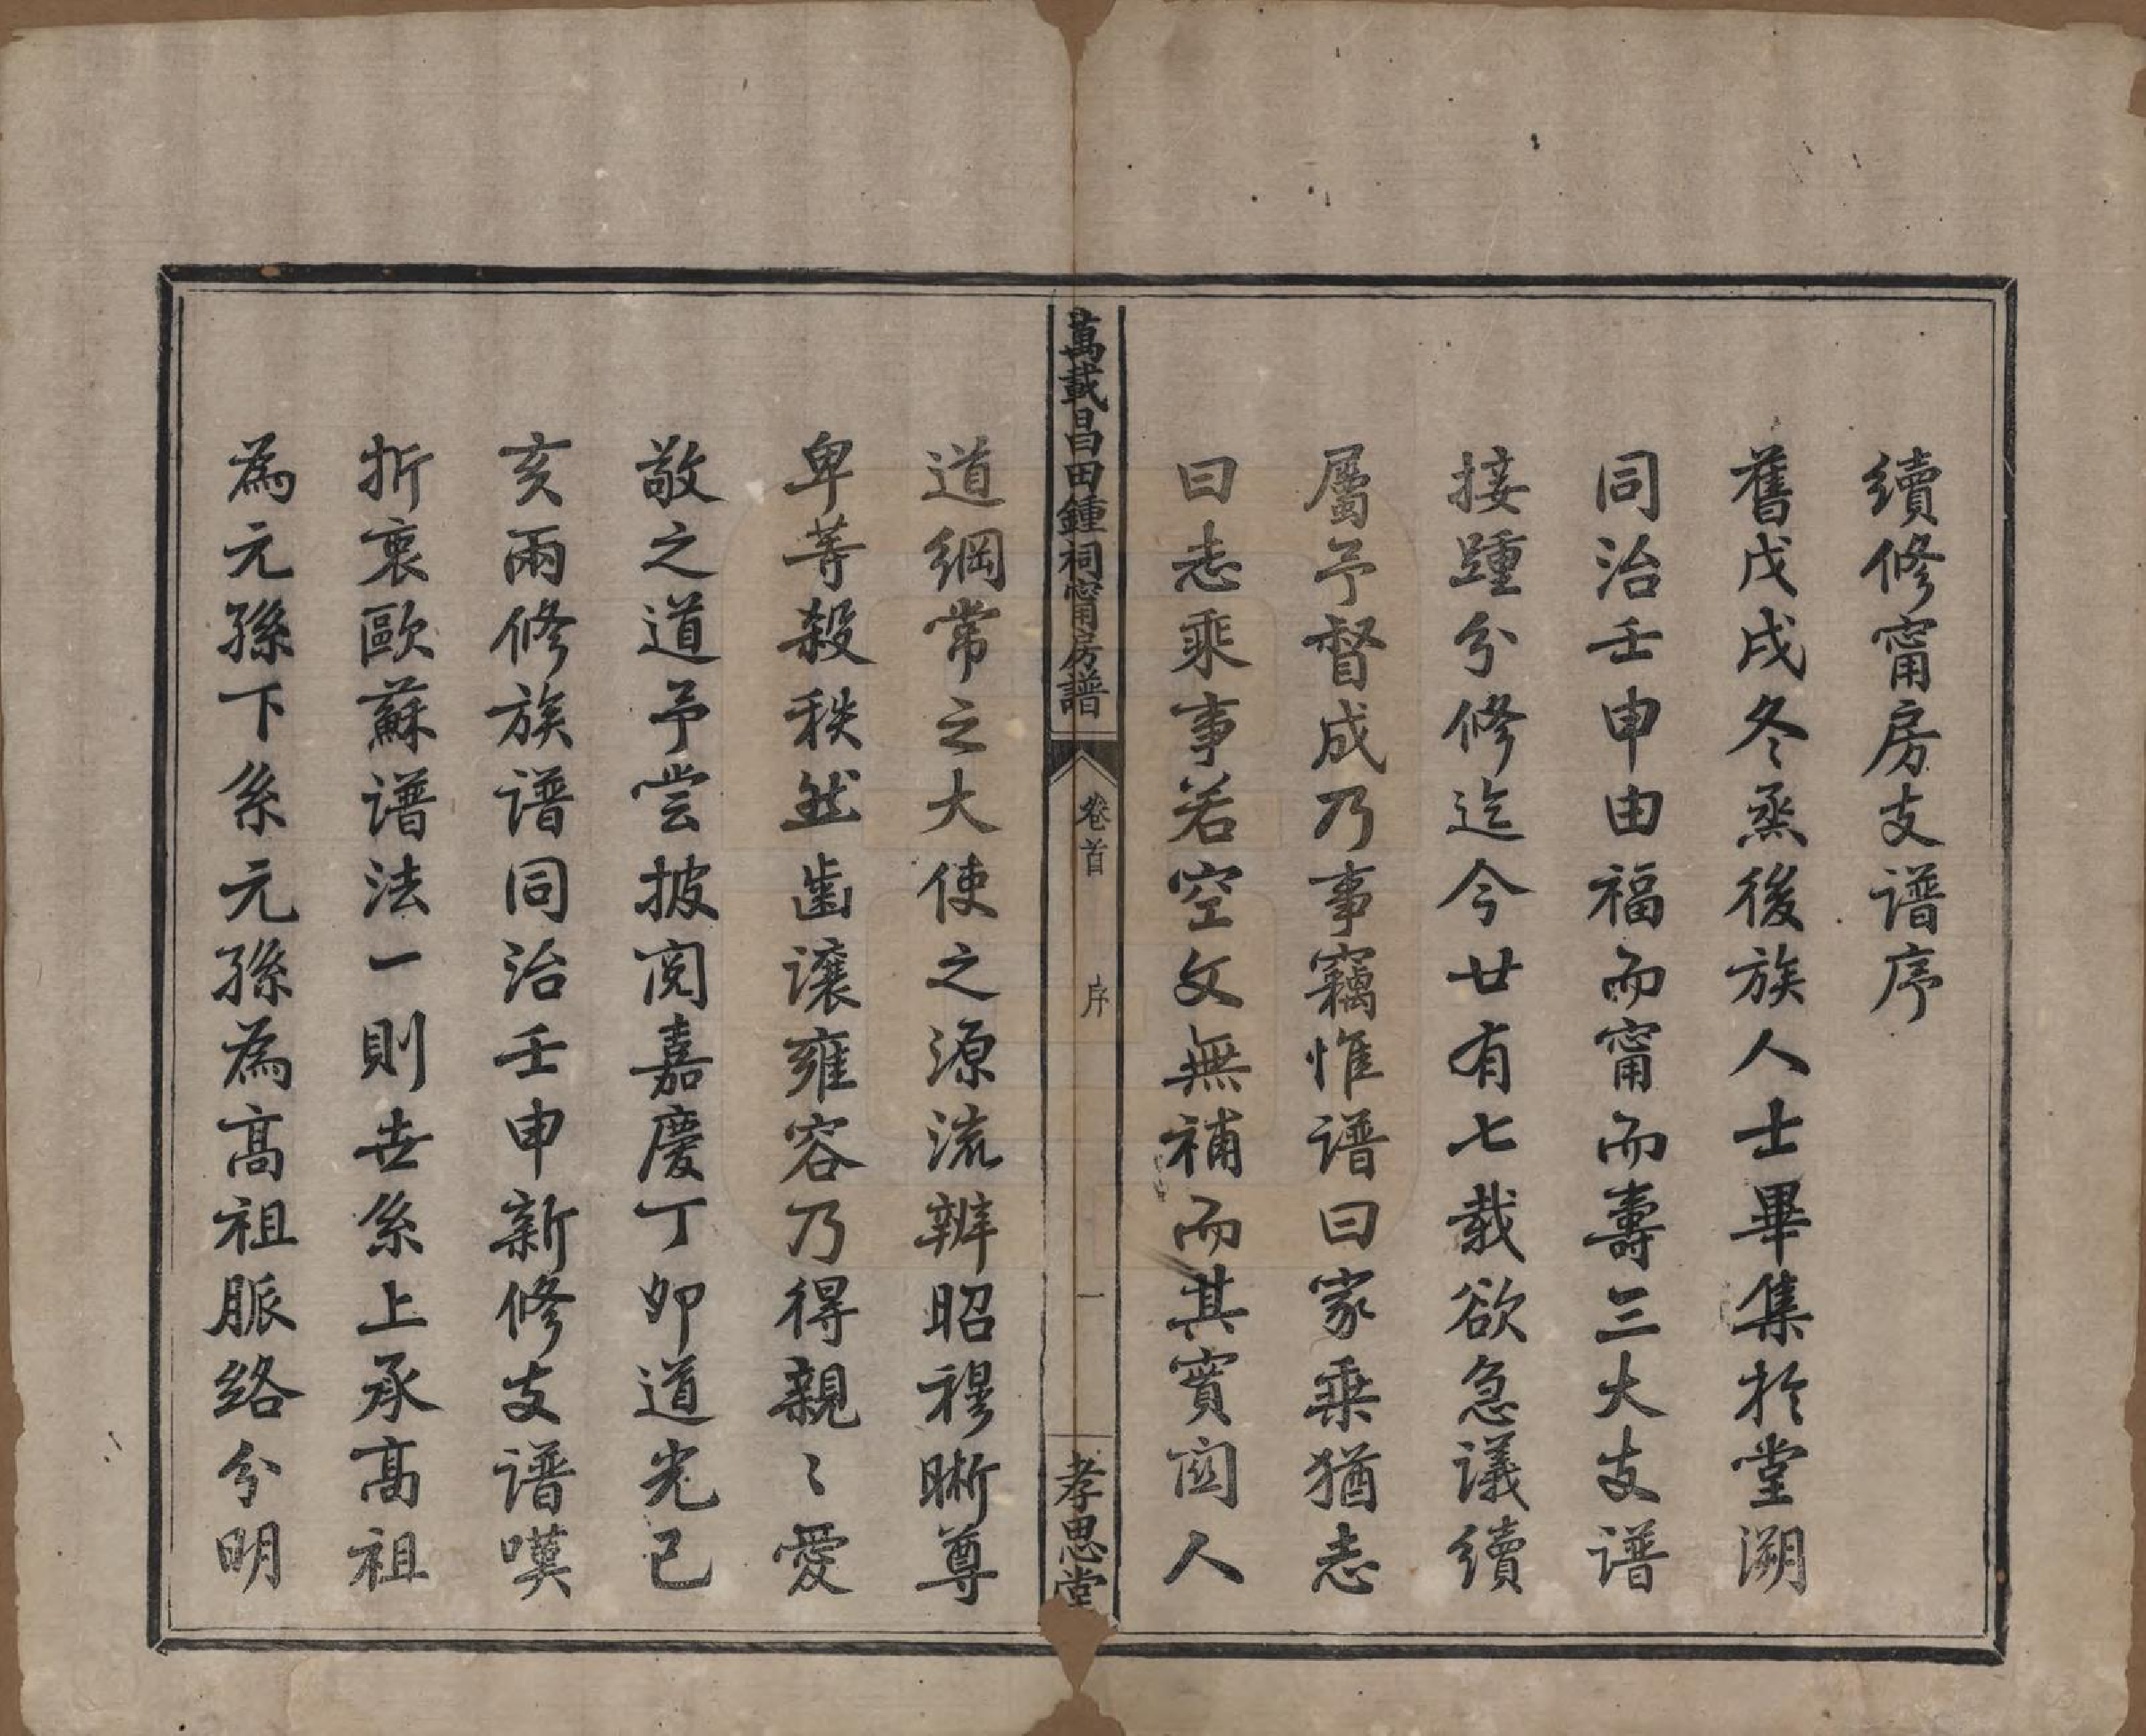 續修甯房支譜序
舊戊戌冬烝後族人士畢集於堂溯
同治壬申由福而甯而壽三大支譜
接踵分修迄今廿有七載欲急議續
屬予督成乃事竊惟譜曰家乘猶志
曰志乘事若空文無補而其實固人
萬載昌田鍾祠甯房譜
卷首
序
一
孝思堂
道綱常之大使之源流辨昭穆晣尊
卑等殺秩然齒讓雍容乃得親〻愛
敬之道予嘗披閱嘉慶丁卯道光己
亥兩修族譜同治壬申新修支譜嘆
折衷歐蘇譜法一則世系上承高祖
為元孫下系元孫為高祖脈絡分明